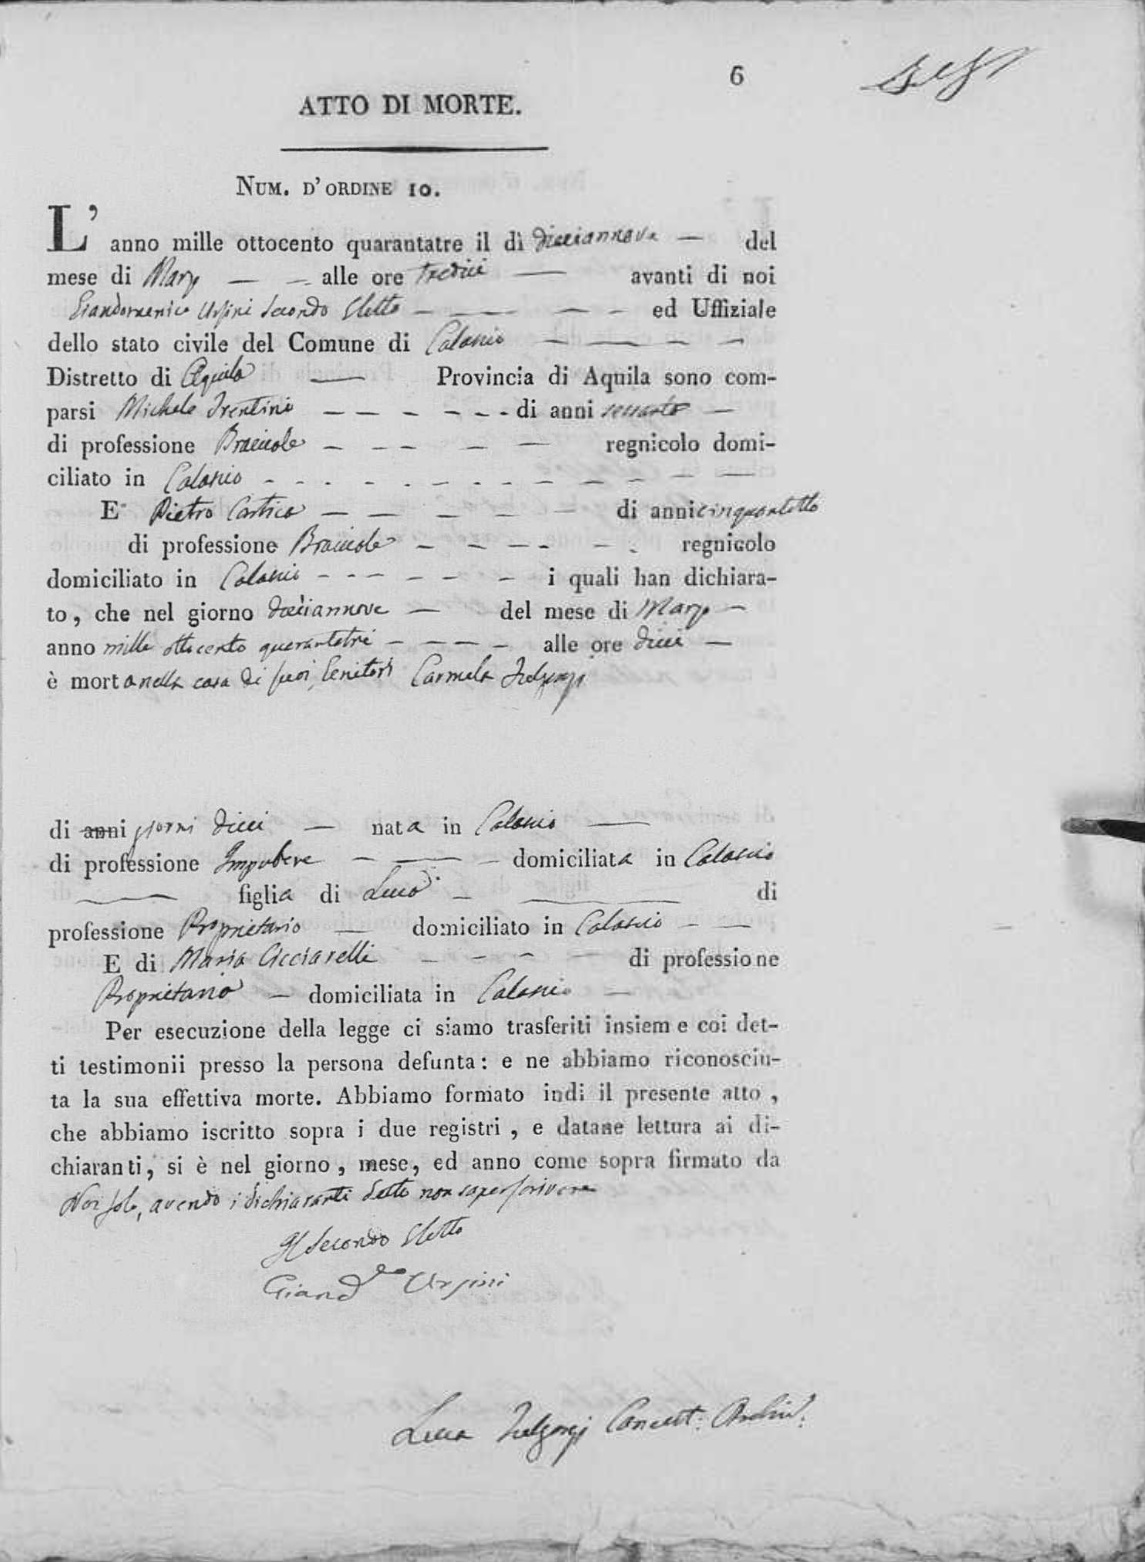 6
ATTO DI MORTE.
NUM. D'ORDINE 10.
L' anno mille ottocento quarantatre il dì dieciannove — del
mese di Marzo — — alle ore tredici — avanti di noi
Giandomenico Ursini Secondo Eletto — — — — ed Uffiziale
dello stato civile del Comune di Calascio — — — —
Distretto di Aquila — Provincia di Aquila sono com-
parsi Michele Trentini — — — — — - di anni sessanta —
di professione Bracciale — — — — — regnicolo domi-
ciliato in Calascio - - - - - - - - - - —
E Pietro Cantica — — — — — di anni cinquantotto
di professione Bracciale — — — — — - regnicolo
domiciliato in Calascio - - - — — — - i quali han dichiara-
to, che nel giorno dieciannove — del mese di Marzo —
anno mille ottocento quarantatrè — — — — alle ore dieci —
è morta nella casa di suoi Genitori Carmela Fulgenzj
di anni giorni dieci — nata in Calascio —
di professione Impubere — — — domiciliata in Calascio
— figlia di Luca — — di
professione Proprietario — domiciliato in Calascio - —
E di Maria Cicciarelli - - - — di professione
Proprietaria — domiciliata in Calascio —
Per esecuzione della legge ci siamo trasferiti insieme coi det-
ti testimonii presso la persona defunta: e ne abbiamo riconosciu-
ta la sua effettiva morte. Abbiamo formato indi il presente atto,
che abbiamo iscritto sopra i due registri, e datane lettura ai di-
chiaranti, si è nel giorno, mese, ed anno come sopra firmato da
Noi solo, avendo i dichiaranti detto non saper scrivere
Il Secondo Eletto
Giand.co Ursini
Luca Fulgenzj Cancell: Archiv: